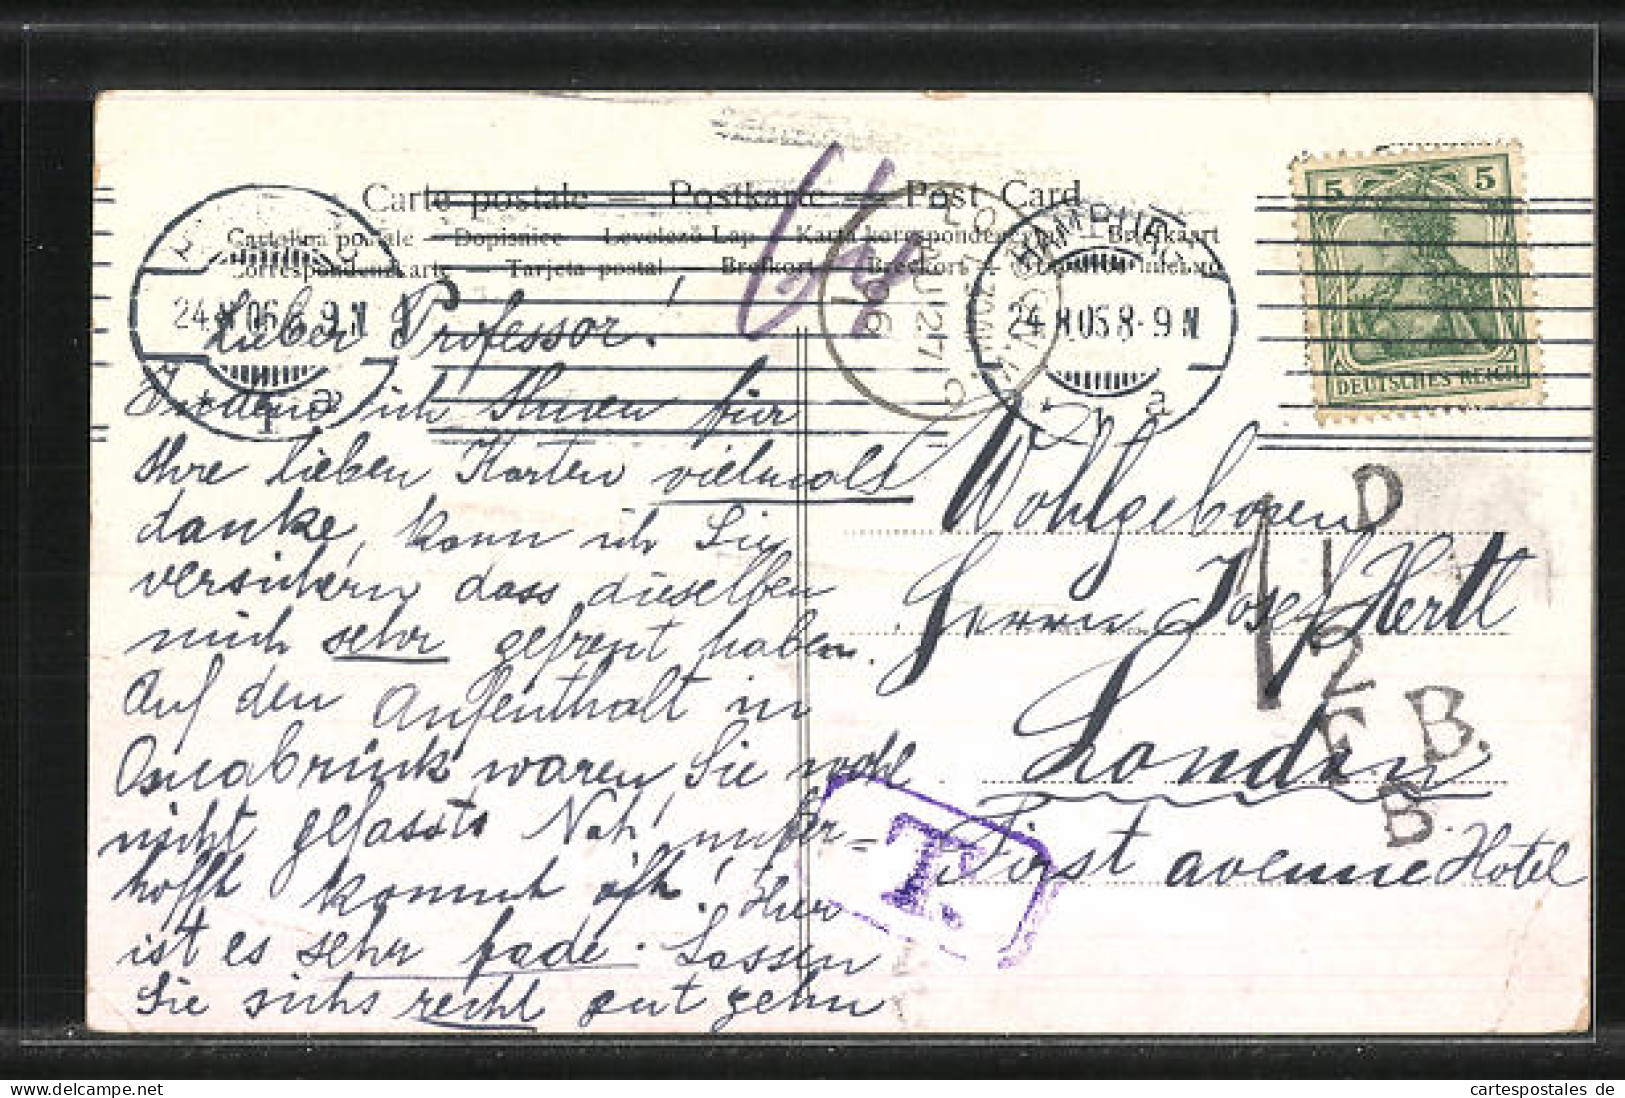 Carte postale — Postkarte — Post Card
Cartolina postale — Dopisnice — Levelező-Lap — Karta korespondencyjna — Briefkaart
Correspondenzkarte — Tarjeta postal — Brefkort — Brevkort —
HAMBURG
24. 05 8-9 N
1 a
24. 05 8-9 N
LONDON
JU 27
06
5 5
DEUTSCHES REICH
Lieber Professor!
Indem ich Ihnen für
Ihre lieben Karten vielmals
danke, kann ich Sie
versichern dass dieselben
mich sehr gefreut haben.
Auf den Aufenthalt in
Osnabrück waren Sie wohl
nicht gefasst. Nah, unver=
hofft kommt oft! Hier
ist es sehr fade. Lassen
Sie sichs recht gut gehn
Wohlgeboren
Herrn Josef Hertl
London
First avenue Hotel
1D
1/2
F.B.
B
T.
cartespostales de